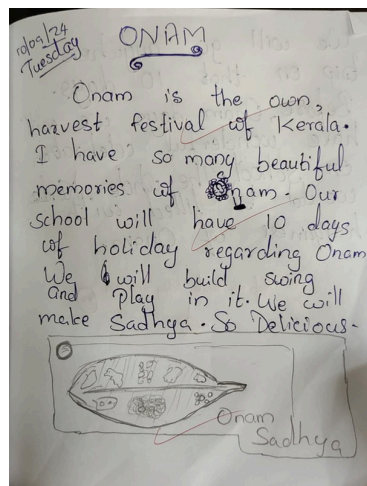 10/09/24
Tuesday
ONAM
Onam is the own,
harvest festival of Kerala.
I have so many beautiful
memories of Onam. Our
school will have 10 days
of holiday regarding Onam
We will build swing
and play in it. We will
make Sadhya. So Delicious.
Onam
Sadhya